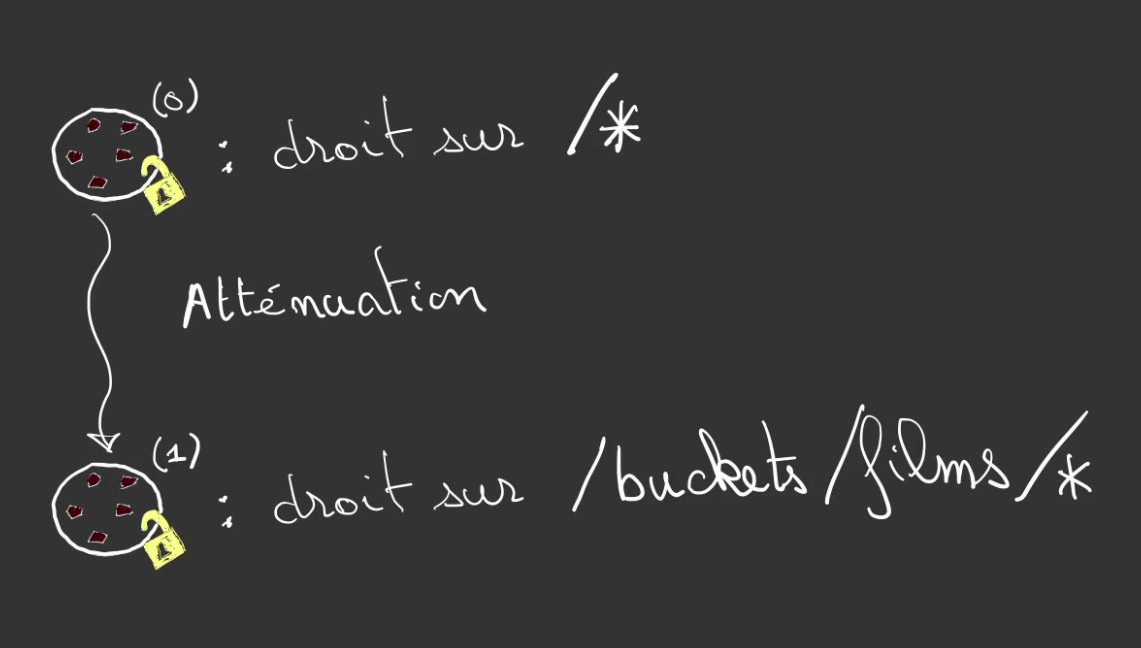 (0) : droit sur /*
Atténuation
(1) : droit sur /buckets/films/*